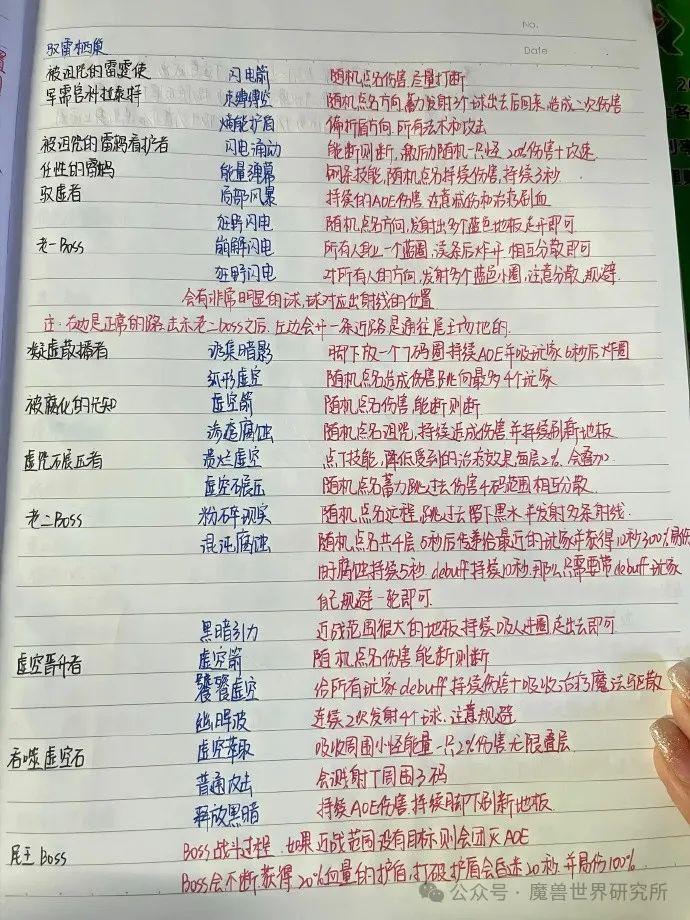 No.
Date
驭雷栖巢
被诅咒的雷霆使 闪电箭 随机点名伤害 尽量打断
军需官 束缚 随机点名方向,蓄力发射3个球出去后回来,造成二次伤害
熵能护盾 偏折盾方向,所有法术和攻击
被诅咒的雷鸦看护者 闪电涌动 能断则断,激励随机一只怪 20%伤害+攻速
任性的雷鸦 能量弹幕 随机点名持续伤害,持续3秒
驭虚者 局部风暴 持续的AOE伤害 注意减伤和治疗刷血
狂野闪电 随机点名方向,发射出多个蓝色地板走开即可
老一Boss 崩解闪电 所有人身上一个蓝圈,读条后炸开 相互分散即可
狂野闪电 对所有人的方向,发射多个蓝色小圈,注意分散、规避.
会有非常明显的球,球对应出射线的位置
注:右边是正常的路,击杀老二boss之后,左边会开一条近路是通往尾王场地的.
凝虚散播者 诱集暗影 脚下放一个7码圈持续AOE并吸玩家 6秒后炸圈
弧形虚空 随机点名造成伤害 跳向最多4个玩家
被腐化的先知 虚空箭 随机点名伤害,能断则断
渗透腐蚀 随机点名诅咒,持续造成伤害并持续刷新地板
虚咒石展压者 溃烂虚空 点T技能,降低受到的治疗效果,每层2%,会叠加
虚空石展压 随机点名蓄力跳过去伤害4码范围,相互分散.
老二Boss 粉碎现实 随机点名远程,跳过去留下黑水并发射多条射线.
混沌腐蚀 随机点名共4层 5秒后传染给最近的玩家并获得10秒300%易伤
由腐蚀持续5秒 debuff持续10秒,那么只需要带debuff玩家
自己规避一轮即可.
黑暗引力 近战范围很大的地板,持续吸人进圈 走出去即可
虚空晋升者 虚空箭 随机点名伤害 能断则断
饕餮虚空 给所有玩家debuff 持续伤害+吸收治疗,魔法驱散
幽暗波 连续2次发射4个球,注意规避
吞噬虚空石 虚空萃取 吸收周围小怪能量一只2%伤害无限叠层
普通攻击 会溅射T周围3码
释放黑暗 持续AOE伤害,持续脚下刷新地板
尾王Boss Boss战斗过程,如果近战范围没有目标则会团灭AOE
Boss会不断获得20%血量的护盾,打破护盾会昏迷20秒,并易伤100%
公众号·魔兽世界研究所